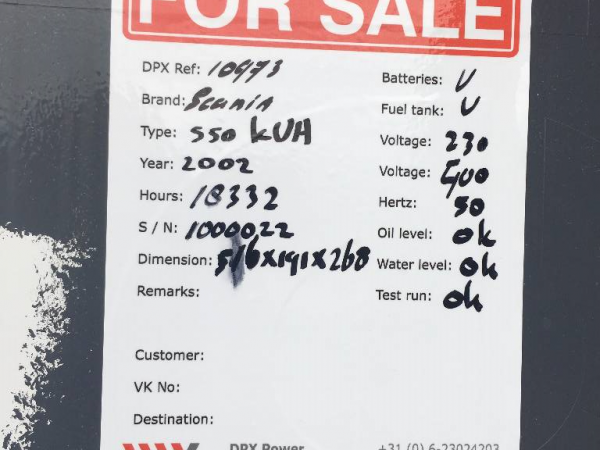 FOR SALE
DPX Ref: 10973
Brand: Scania
Type: 550 kVA
Year: 2002
Hours: 18332
S / N: 1000022
Dimension: 516x191x268
Remarks:
Customer:
VK No:
Destination:
Batteries: V
Fuel tank: V
Voltage: 230
Voltage: 400
Hertz: 50
Oil level: ok
Water level: ok
Test run: ok
DPX Power
+31 (0) 6-23024203